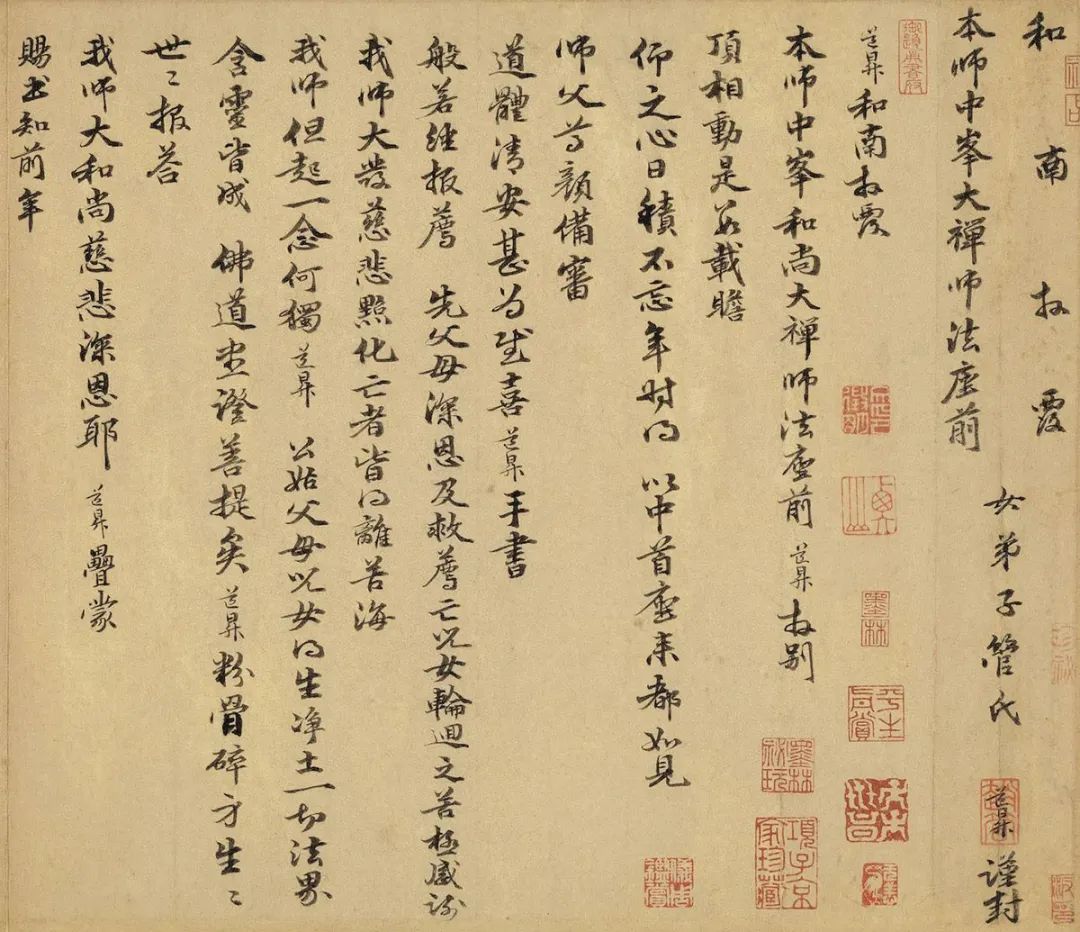 和南拜覆
女弟子管氏道昇謹封
本师中峯大禪师法座前
道昇和南拜覆
本师中峯和尚大禅师法座前道昇拜别
頂相動是数載瞻
仰之心日積不忘年时得以中首座来都如見
师父尊顏備審
道體清安甚为慰喜道昇手書
般若经报薦先父母深恩及救薦亡兒女輪迴之苦極感谢
我师大發慈悲點化亡者皆得離苦海
我师但起一念何獨道昇公姑父母兒女得生净土一切法界
含靈皆成佛道盡證菩提矣道昇粉骨碎身生〻
世〻报荅
我师大和尚慈悲深恩耶道昇疊蒙
赐书知前年
墨林
項子京家珍藏
墨林秘玩
平生真賞